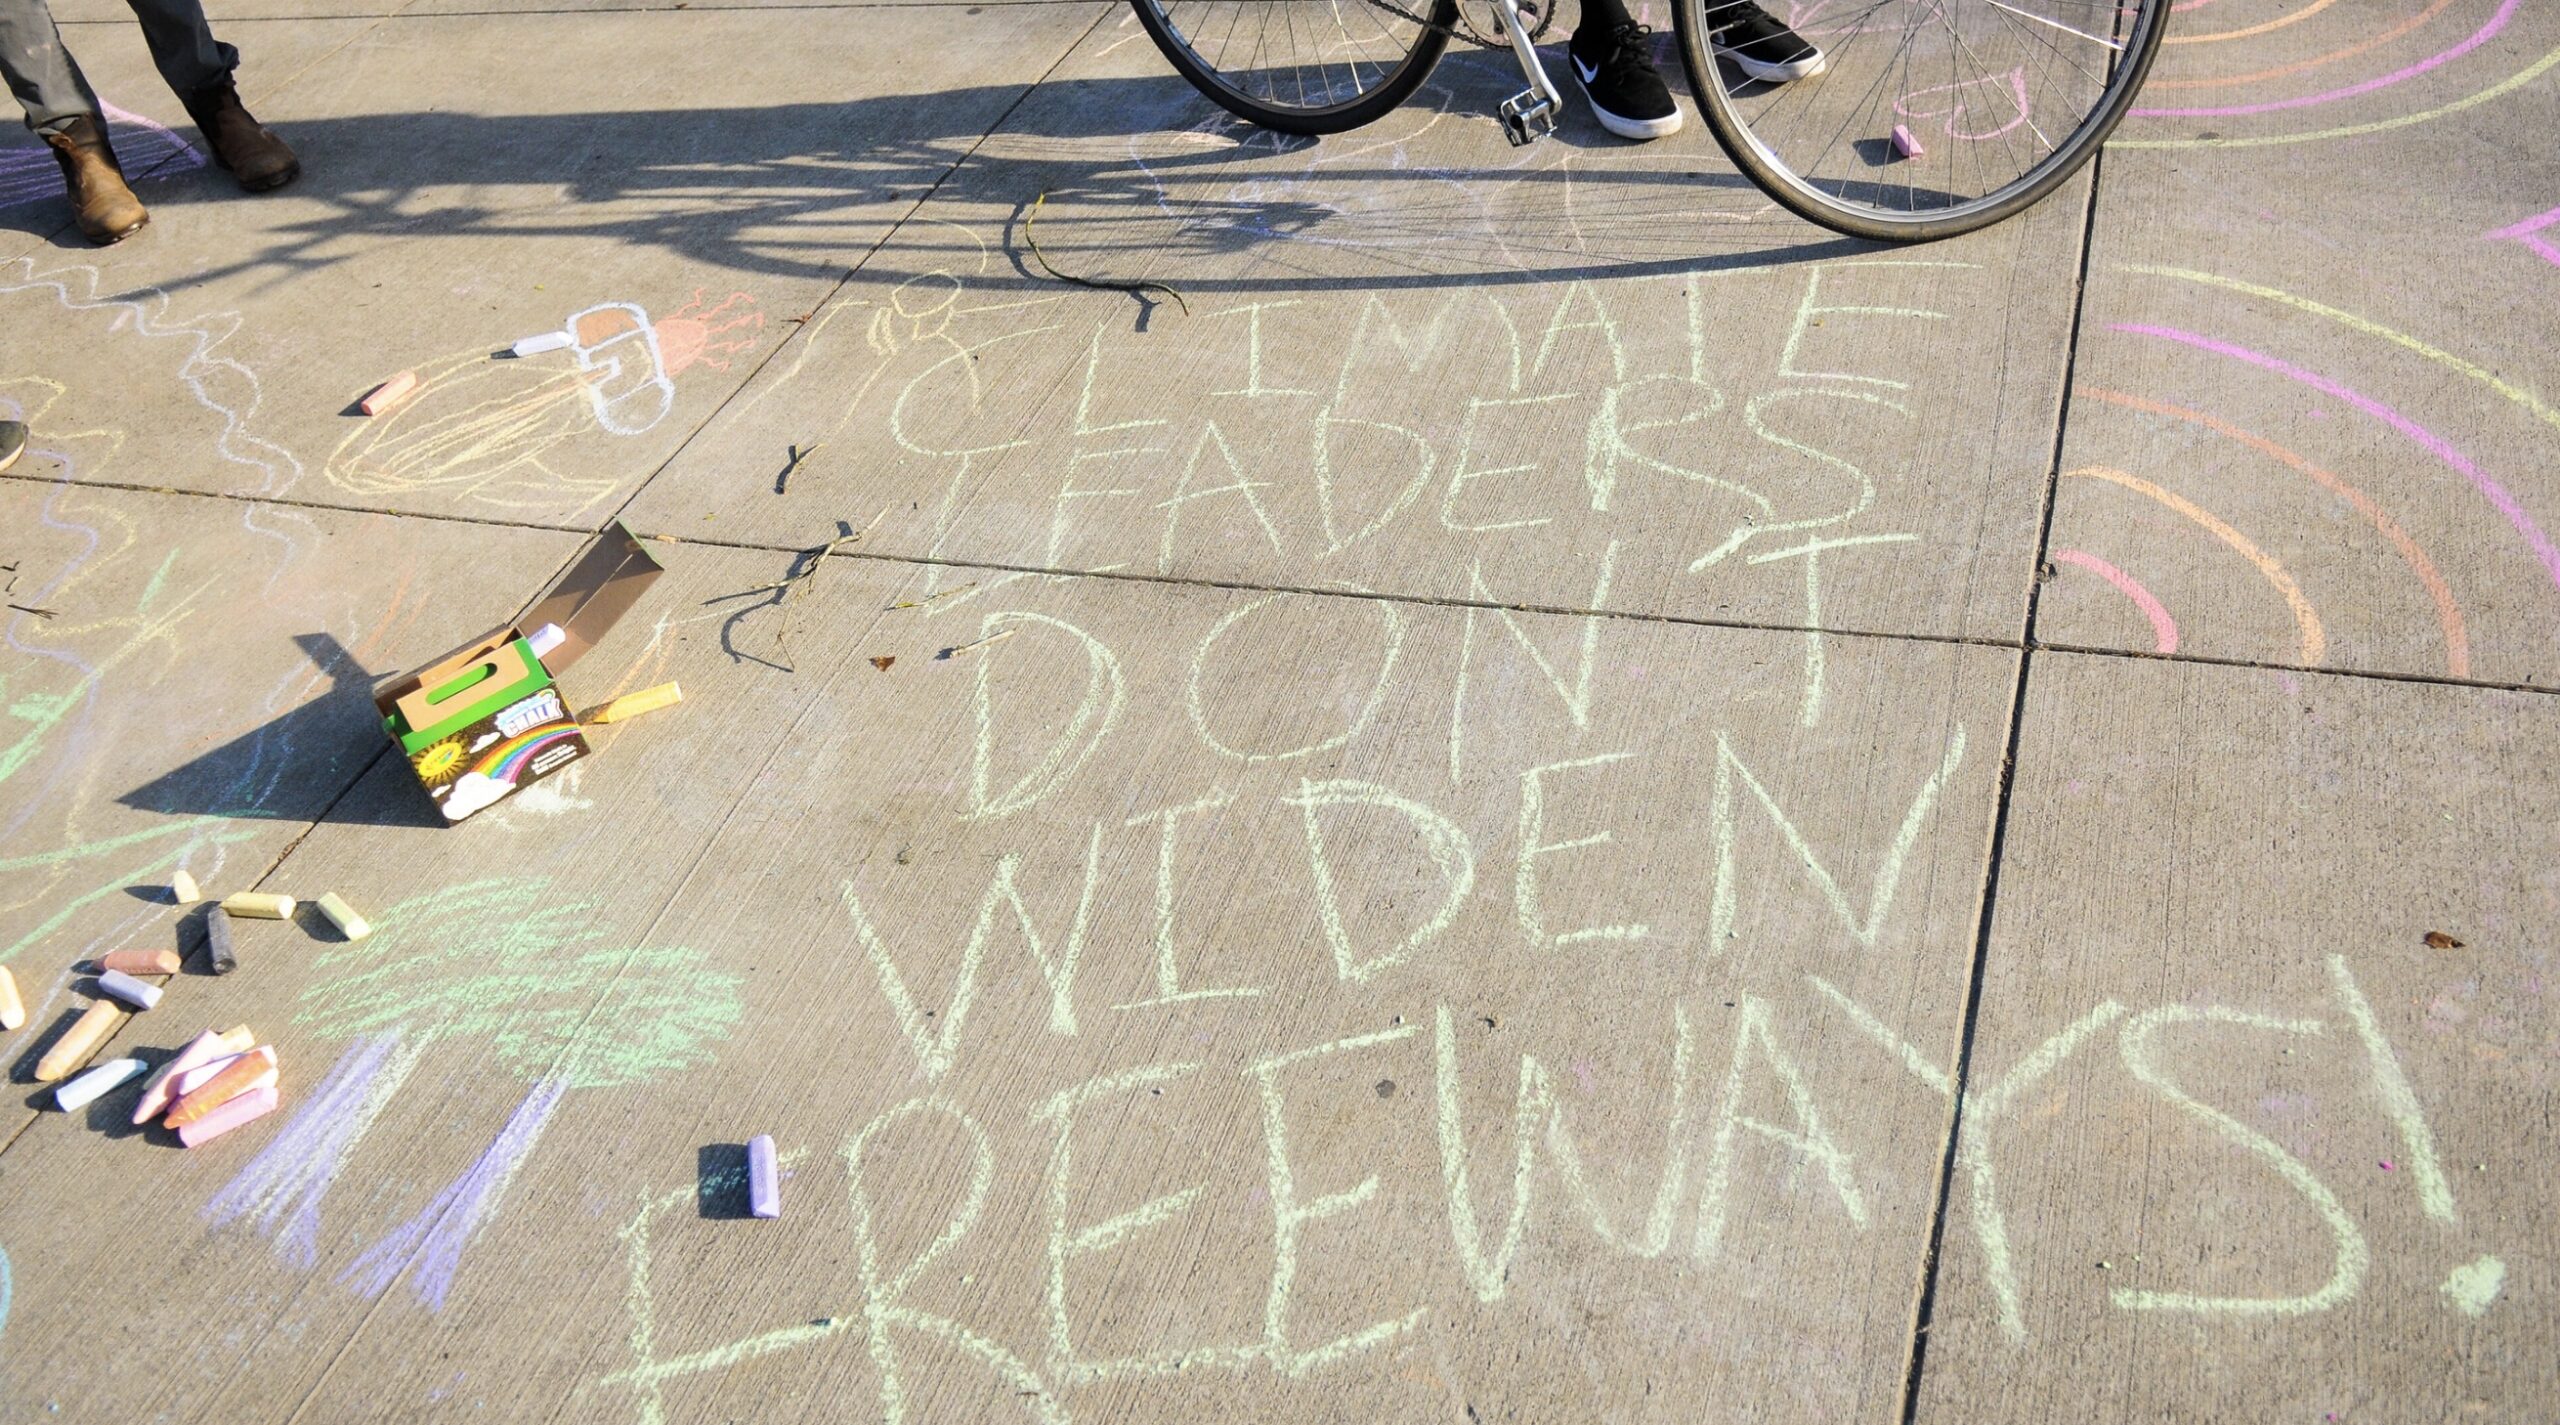 CLIMATE
LEADERS
DON'T
WIDEN
FREEWAYS!
CHALK